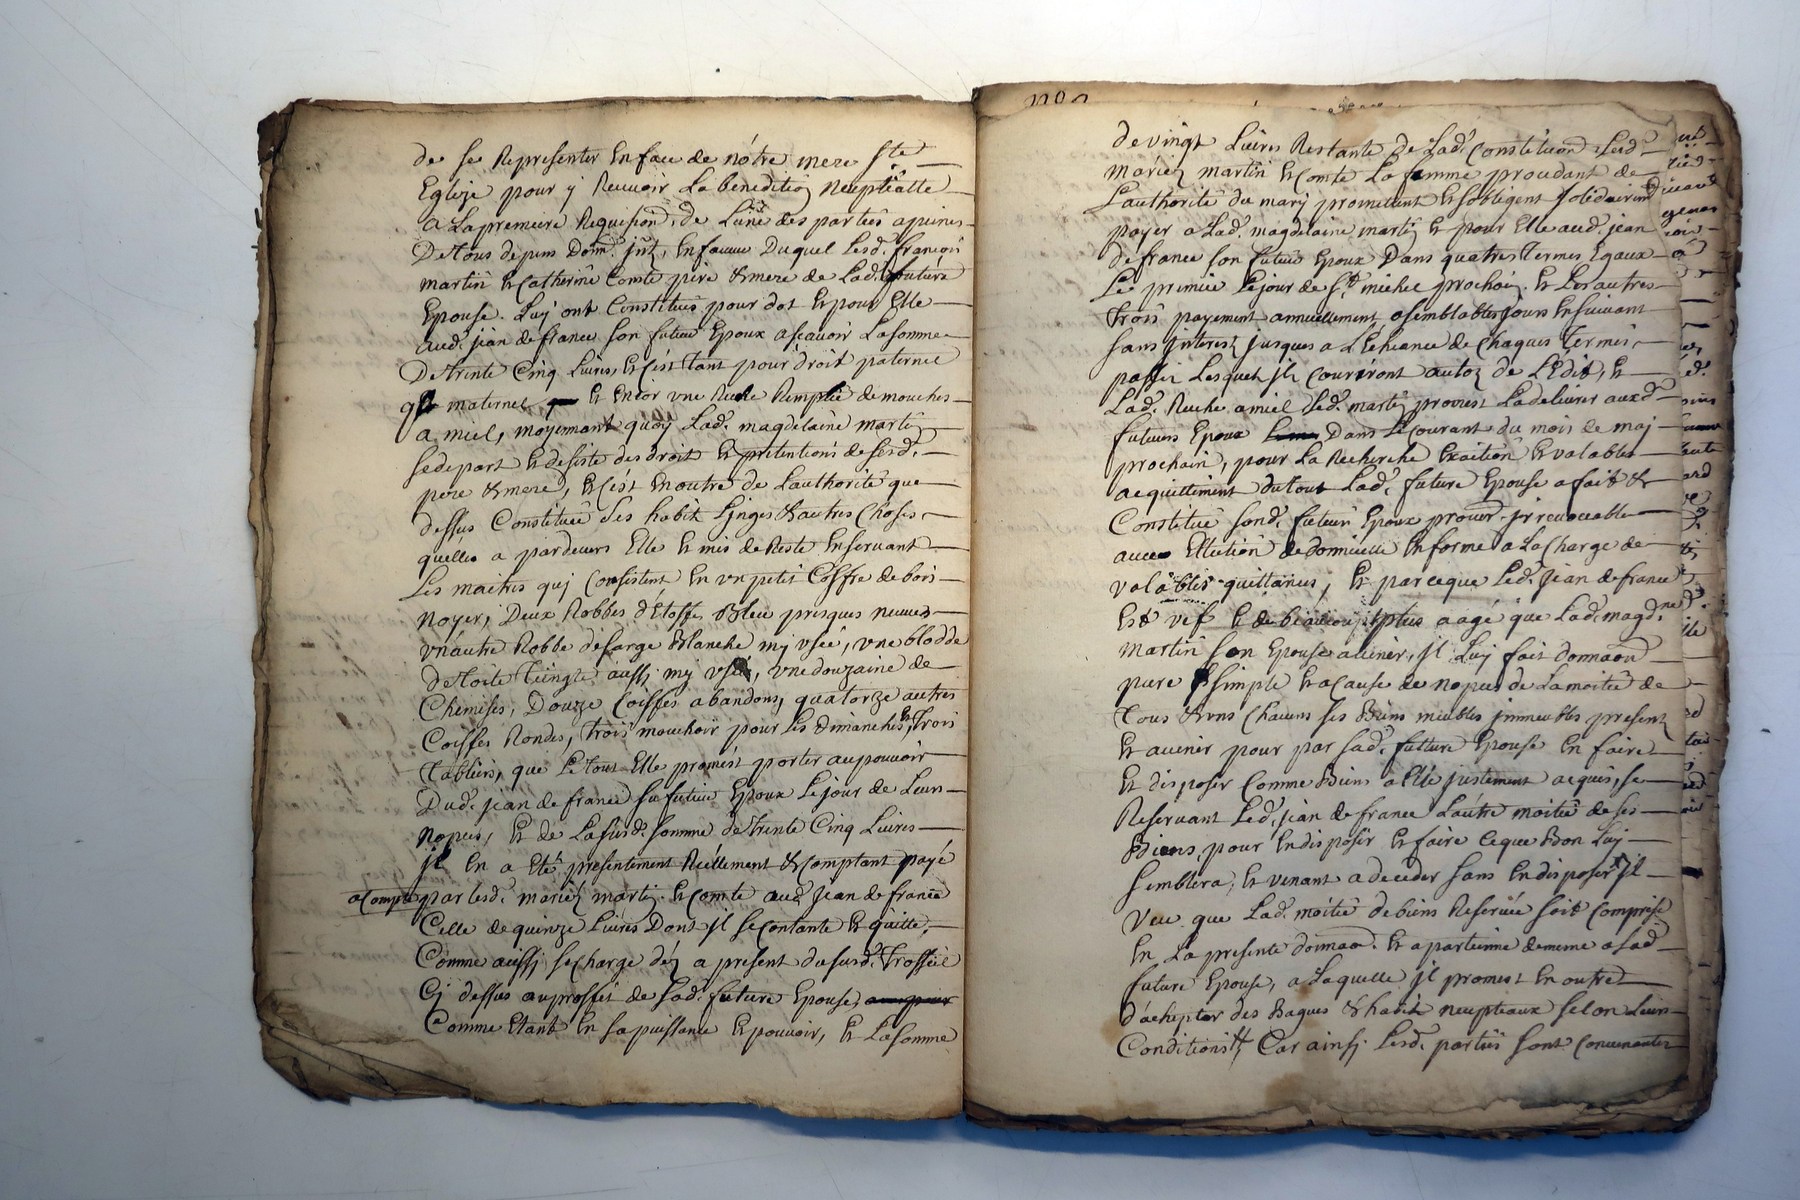 de se Representer En face de nótre mere Ste
Eglize pour y Recevoir La benediction Neuptialle
A La premiere Requisition de L'une des parties a peines
De tous depens Dom. jnt, En faveur Duquel Lesd. francois
martin & Catherine Comte pere & mere de Lad. future
Epouse. Luy ont Constitués pour dot & pour Elle
aud. jean de france son futur Epoux a scavoir La somme
De trente Cinq Livres, & C'est tant pour droit paternel
que maternel & Encor vne Ruche Remplie de mouches
a miel, moyennant quoy Lad. magdelaine martin
se depart & desiste des droit & pretentions de sesd.
pere & mere, & C'est En outre de L'authorité que
dessus Constituée Ses habit Linges & autres Choses
quelles a pardevers Elle & mis de Reste En servant
Les maitres quj Consistent En vn petit Coffre de bois
Noyer, Deux Robbes d'Etoffe Bleu presques neuves
vn autre Robbe de sarge Blanche mj vsée, vne blodde
de toile Teingte aussj mj vsé, vne douzaine de
Chemises, Douze Coiffes a bandons, quatorze autres
Coiffes Rondes, trois mouchoir pour Les dimanches, & Trois
tabliers, que Le tout Elle promést porter au pouvoir
Dud. jean de france son futur Epoux Le jour de Leurs
Nopces, & de La susd. somme de trente Cinq Livres
jl En a Eté presentement Réellement & comptant payé
a Compte par lesd. mariez martin & Comte aud. Jean de france
Celle de quinze Livres Dont jl se Contante & quitte,
Comme aussj se Charge déz a present du susd. Trossel
Cj dessus au proffit de Sad. future Epouse,
Comme Etant En sa puissance & pouvoir, & La somme
de vingt Livres Restante de Lad. Constitution Lesd.
Mariez martin & Comte La femme procedant de
L'authorité du mary promettent & s'obligent solidairem
payer a Lad. magdelaine martin & pour Elle aud. jean
de france son futur Epoux Dans quatres Termes Egaux
Le premier Le jour de St. michel prochain & Les autres
trois payement annuellement a semblables jours Ensuivant
sans jnterest jusques a L'Echeance de Chaques Termes,
passez Lesquels jls Courront au taux de L'Edit, &
Lad. Ruche a miel Led. martin promest La delivrer auxd.
futurs Epoux Dans Le Courant du mois de maj
prochain, pour La Recherche Exaction & valables
acquittement du tout Lad. future Epouse a fait &
Constitué sond. futur Epoux procur. jrrevocable
avec Ellection de domicille En forme a La Charge de
valables quittances, & parceque Led. Jean de france
Est vef & de beaucoup plus aagé que Lad. magd.ne
Martin son Epouse a venir, jl Luj fait donnaon
pure & simple & a Cause de nopces de La moitié de
tous & vns Chacuns ses Biens meubles jmmeubles present
& avenir pour par Sad. future Epouse En faire
Et disposer Comme Biens a Elle justement acquis, se
Reservant Led. jean de france L'autre moitié de ses
Biens, pour En disposer & faire Ceque Bon Luj
semblera, & venant a deceder sans En disposer jl
Veu que Lad. moitié de biens Reservée soit Comprise
En La presente donnaon & apartienne de meme a Sad.
future Epouse, a Laquelle jl promest En outre
d'achepter des Bagues & habit neuptiaux selon Leurs
Conditions, Car ainsj Lesd. parties sont Convenantes